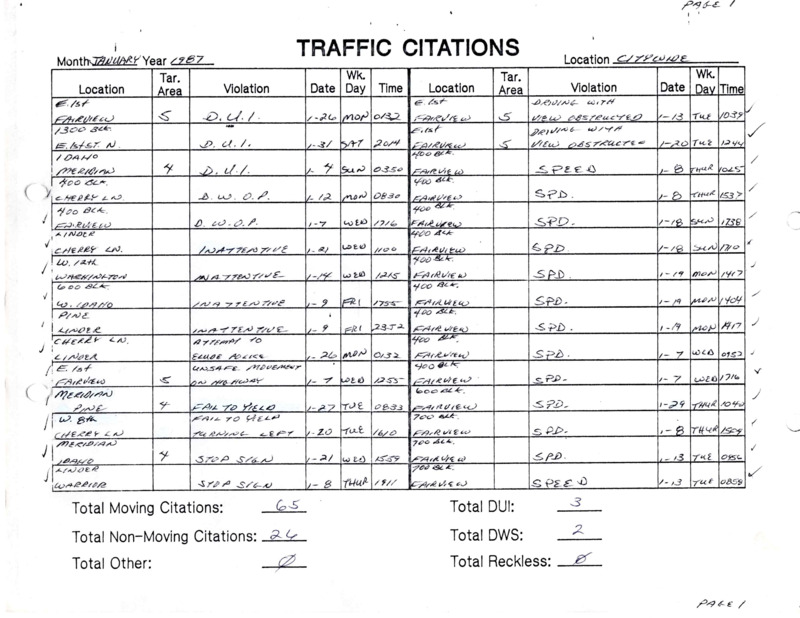 PAGE 1
TRAFFIC CITATIONS
Month JANUARY Year 1987 Location CITYWIDE
Location Tar. Area Violation Date Wk. Day Time Location Tar. Area Violation Date Wk. Day Time
E. 1st E. 1st DRIVING WITH
FAIRVIEW 5 D.U.I. 1-26 MON 0132 FAIRVIEW 5 VIEW OBSTRUCTED 1-13 TUE 1039
1300 BLK. E. 1st DRIVING WITH
E. 1st ST. N. D.U.I. 1-31 SAT 2014 FAIRVIEW 5 VIEW OBSTRUCTED 1-20 TUE 1244
IDAHO 400 BLK.
MERIDIAN 4 D.U.I. 1-4 SUN 0350 FAIRVIEW SPEED 1-8 THUR 1065
400 BLK. 400 BLK.
CHERRY LN. D.W.O.P. 1-12 MON 0830 FAIRVIEW SPD. 1-8 THUR 1537
400 BLK. 400 BLK.
FAIRVIEW D.W.O.P. 1-7 WED 1716 FAIRVIEW SPD. 1-18 SUN 1738
LINDER 400 BLK.
CHERRY LN. INATTENTIVE 1-21 WED 1100 FAIRVIEW SPD. 1-18 SUN 1710
W. 12th 400 BLK.
WASHINGTON INATTENTIVE 1-14 WED 1215 FAIRVIEW SPD. 1-19 MON 1417
600 BLK. 400 BLK.
W. IDAHO INATTENTIVE 1-9 FRI 1755 FAIRVIEW SPD. 1-19 MON 1404
PINE 400 BLK.
LINDER INATTENTIVE 1-9 FRI 2352 FAIRVIEW SPD. 1-19 MON 1917
CHERRY LN. ATTEMPT TO 400 BLK.
LINDER ELUDE POLICE 1-26 MON 0132 FAIRVIEW SPD. 1-7 WED 0952
E. 1st UNSAFE MOVEMENT 400 BLK.
FAIRVIEW 5 ON HIGHWAY 1-7 WED 1255 FAIRVIEW SPD. 1-7 WED 1716
MERIDIAN 600 BLK.
PINE 4 FAIL TO YIELD 1-27 TUE 0833 FAIRVIEW SPD. 1-29 THUR 1040
W. 8th FAIL TO YIELD 700 BLK.
CHERRY LN TURNING LEFT 1-20 TUE 1610 FAIRVIEW SPD. 1-8 THUR 1509
MERIDIAN 700 BLK.
IDAHO 4 STOP SIGN 1-21 WED 1559 FAIRVIEW SPD. 1-13 TUE
LINDER 700 BLK.
WARRIOR STOP SIGN 1-8 THUR 1911 FAIRVIEW SPEED 1-13 TUE 0858
Total Moving Citations: 65 Total DUI: 3
Total Non-Moving Citations: 26 Total DWS: 2
Total Other: 0 Total Reckless: 0
PAGE 1